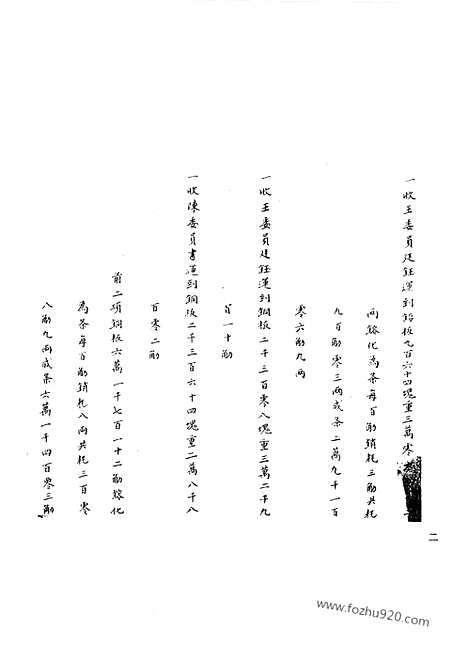 一收王委員廷鈺運到鉛板九百六十四塊重三萬零
兩鎔化為条每百觔銷耗三觔共耗
九百觔零三兩成条二萬九千一百
零六觔九兩
一收王委員廷鈺運到銅板二千三百零八塊重三萬二千九
百一十觔
一收陳委員書運到銅板二千三百六十四塊重二萬八千八
百零二觔
前二項銅板六萬一千七百一十二觔鎔化
為条每百觔銷耗八兩共耗三百零
八觔九兩成条六萬一千四百零三觔
二
www.fozhu920.com